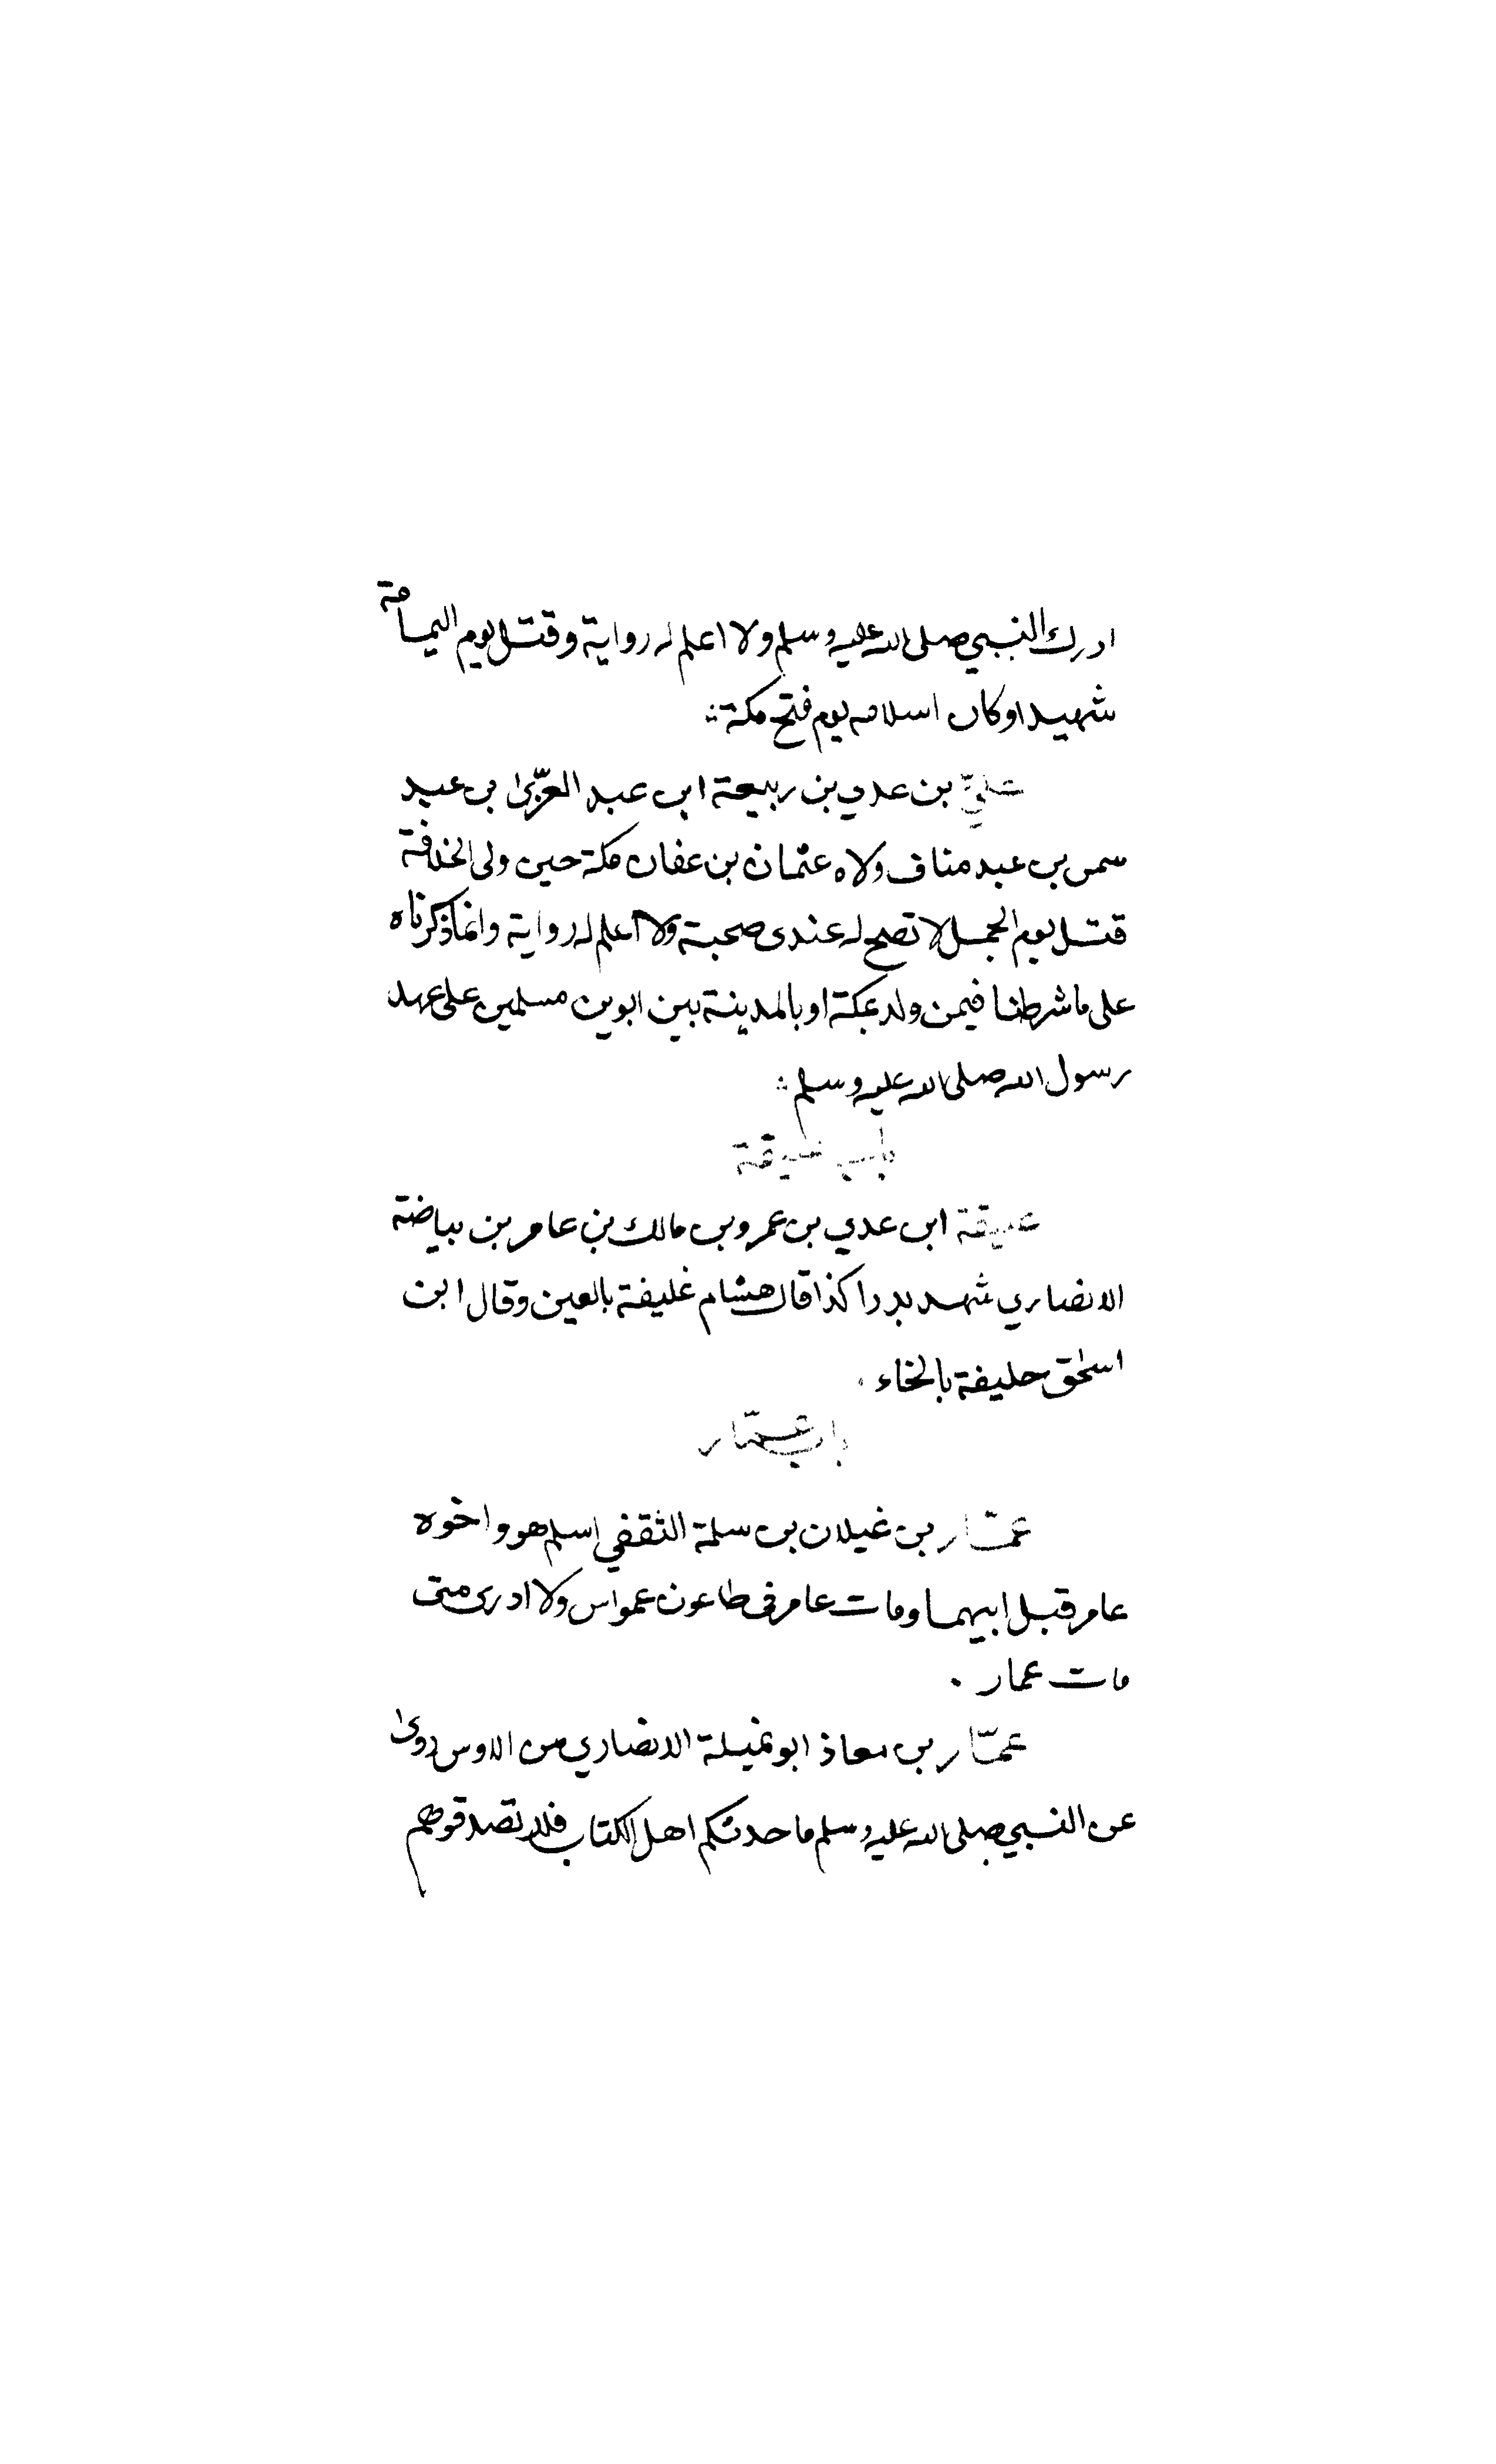 ادرك النبي صلى الله عليه وسلم ولا اعلم له رواية وقتل يوم اليمامة
شهيدا وكان اسلامه يوم فتح مكة
علي بن عدي بن ربيعة ابن عبد العزى بن عبد
سمس بن عبد مناف ولاه عثمان بن عفان مكة حين ولى الخلافة
قتل يوم الجمل لا تصح له عندى صحبة ولا اعلم له رواية وانما ذكرناه
على ما شرطنا فيمن ولد بمكة او بالمدينة بين ابوين مسلمين على عهد
رسول الله صلى الله عليه وسلم
باب
ابن عدي بن عمرو بن مالك بن عامر بن بياضة
الانصاري شهد بدرا كذا قال هشام غليفة بالعين وقال ابن
اسحق خليفة بالخاء
باب عمّار
عمّار بن غيلان بن سلمة الثقفي اسلم هو واخوه
عامر قبل ابيهما ومات عامر في طاعون عمواس ولا ادرى متى
مات عمار .
عمّار بن معاذ ابو نميلة الانصاري من الاوس روى
عن النبي صلى الله عليه وسلم ما حدثكم اهل الكتاب فلا تصدقوهم